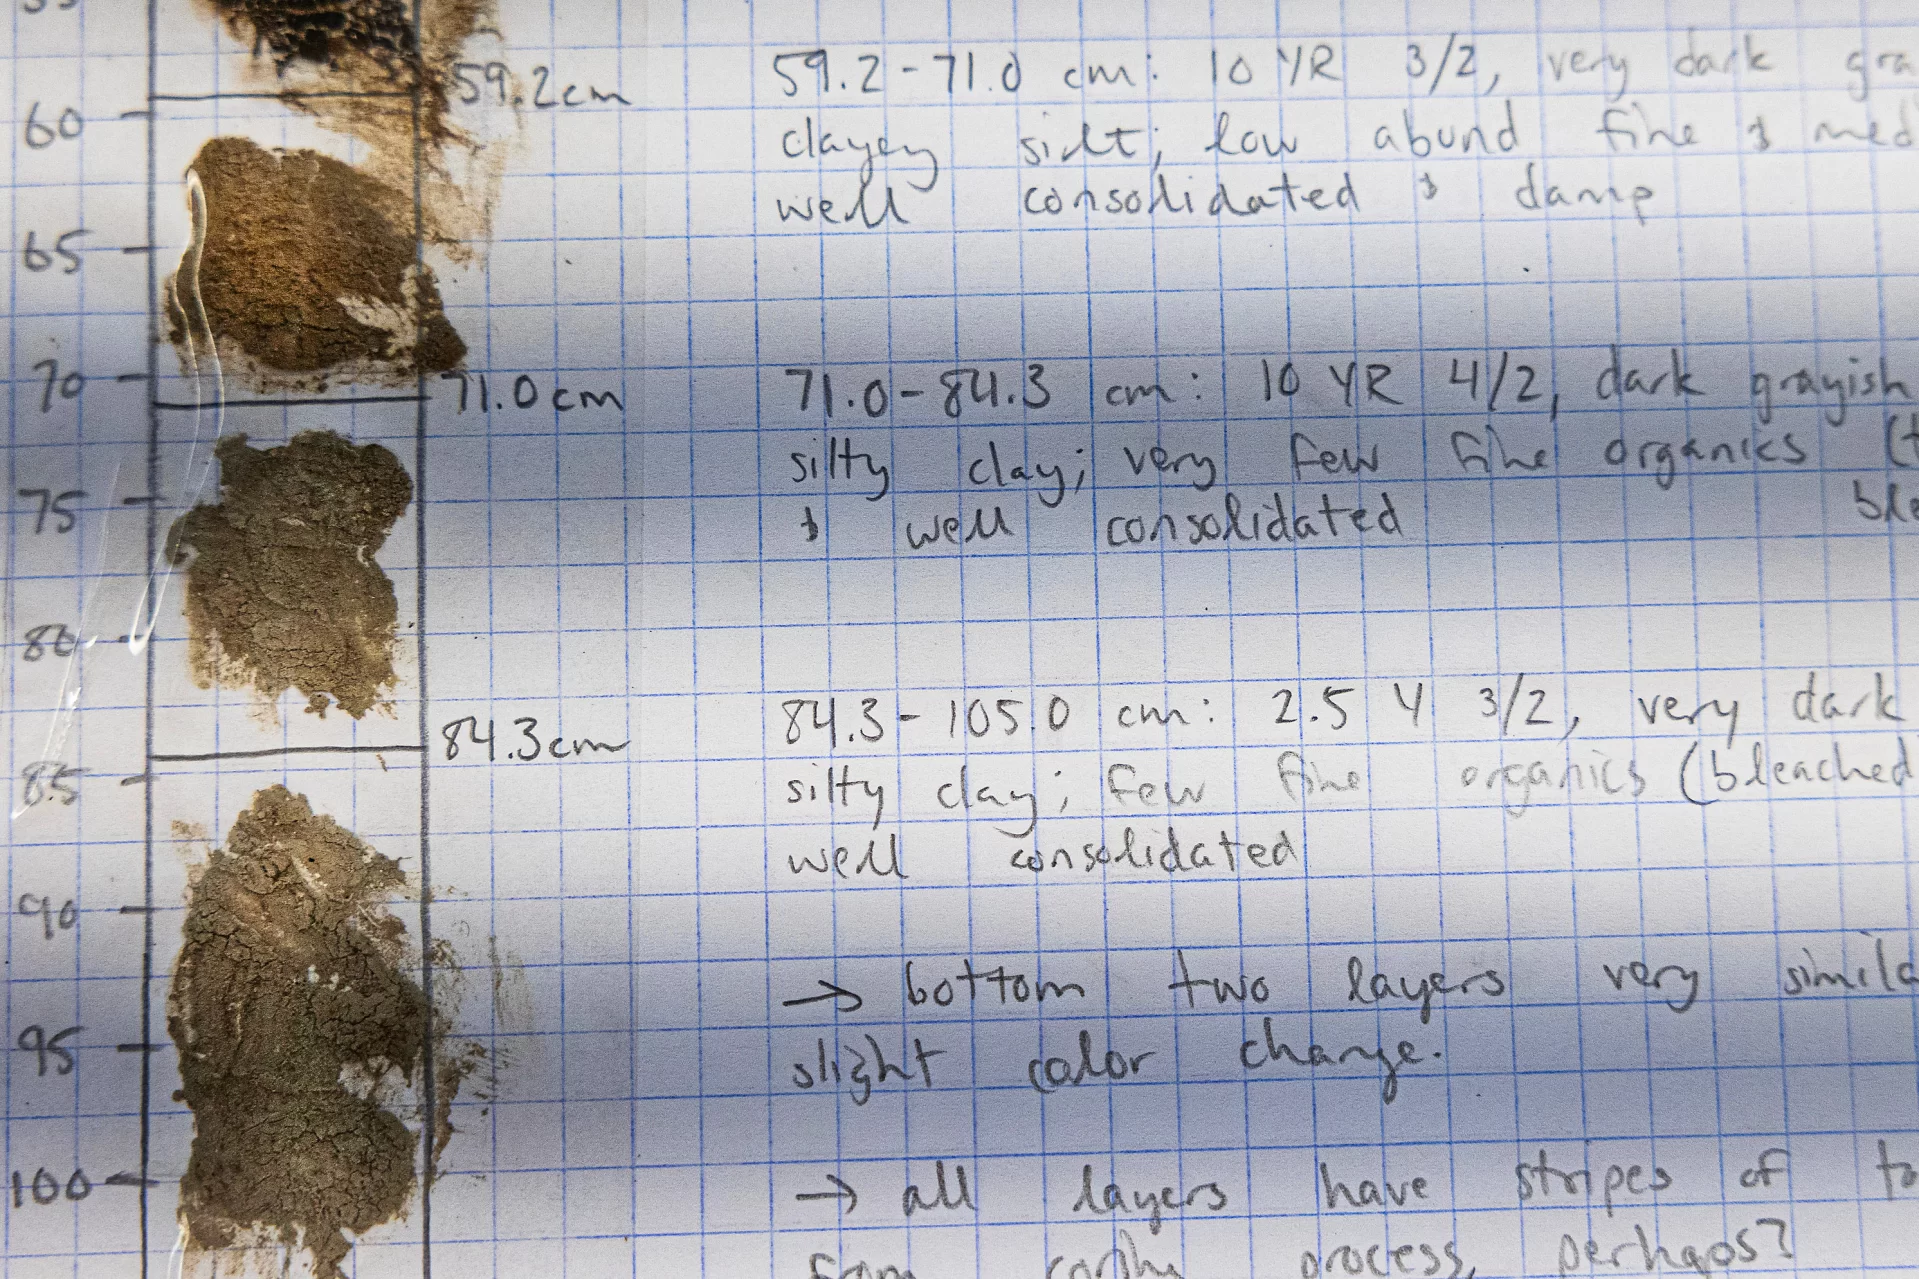 59.2cm
60
65
70
71.0cm
75
80
84.3cm
85
90
95
100
59.2-71.0 cm: 10 YR 3/2, very dark gra
clayey silt; low abund fine & med
well consolidated & damp
71.0-84.3 cm: 10 YR 4/2, dark grayish
silty clay; very few fine organics (t
ble
& well consolidated
84.3-105.0 cm: 2.5 Y 3/2, very dark
silty clay; few fine organics (bleached
well consolidated
→ bottom two layers very simila
slight color change.
→ all layers have stripes of to
from process, perhaps?